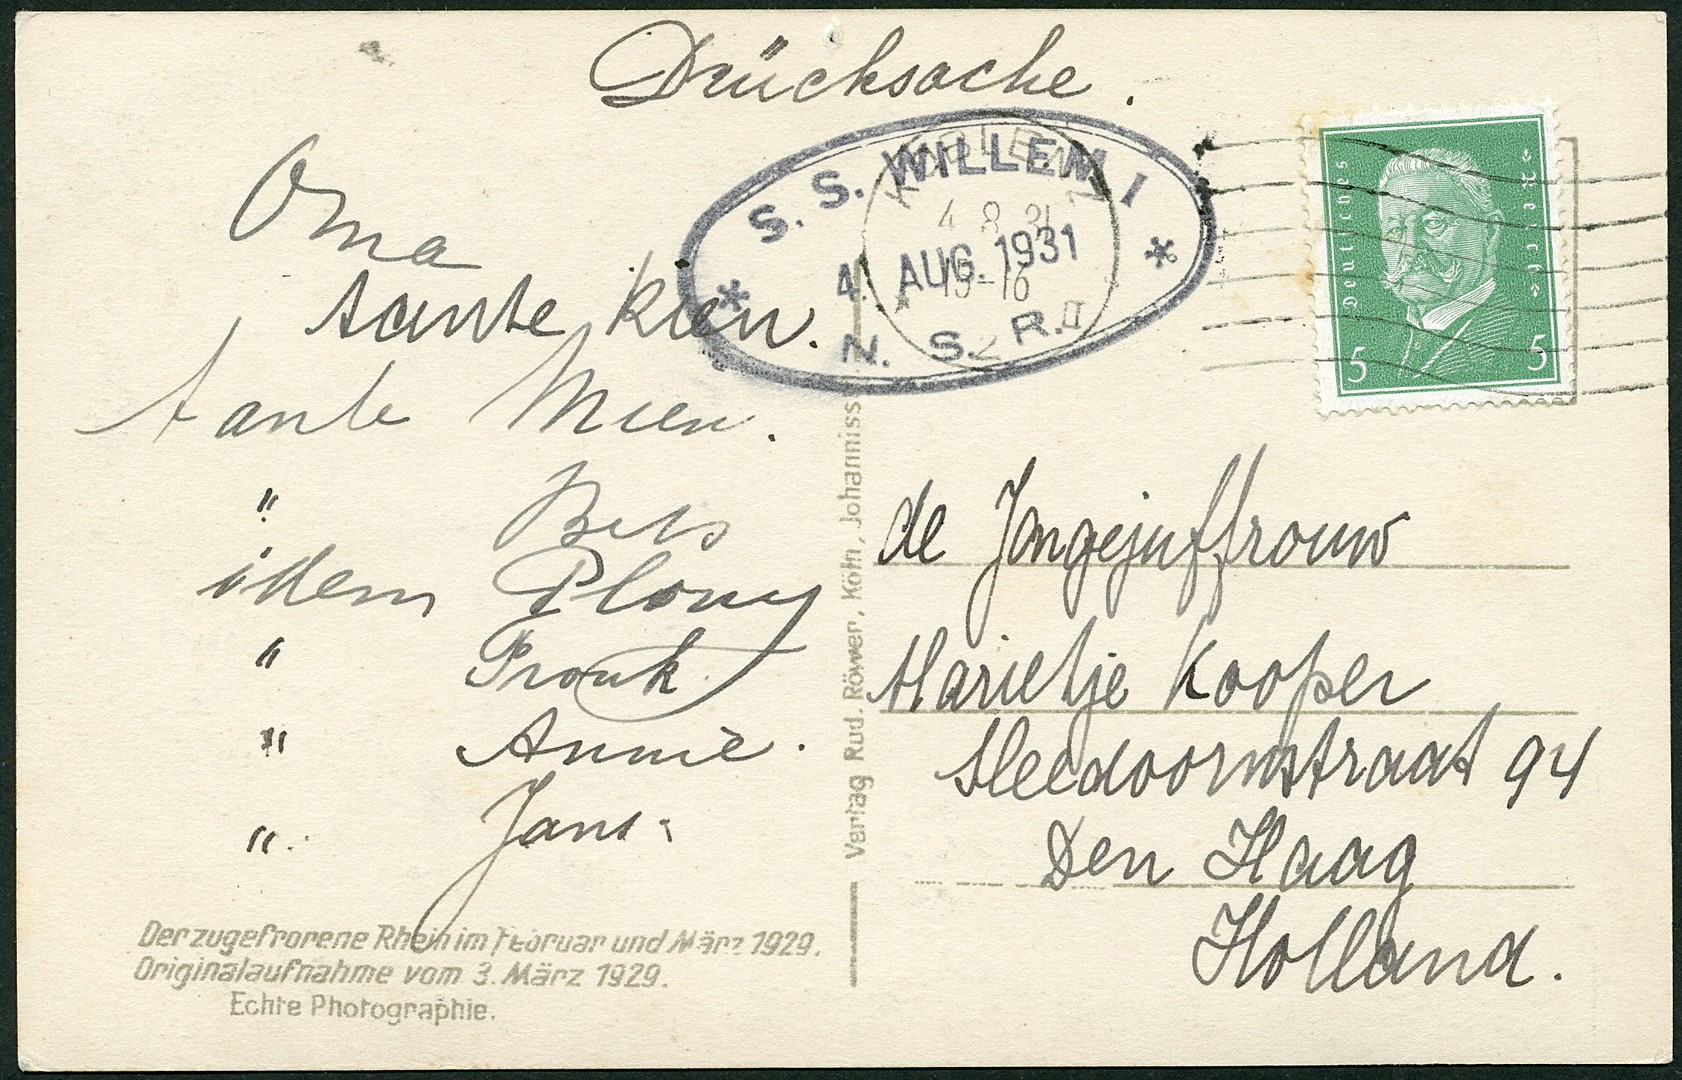 Drücksache.
Oma
tante Rien.
tante Mien.
" Bets
idem Plony
" Pronk.
" Annie.
" Jans.
Der zugefrorene Rhein im Februar und März 1929.
Originalaufnahme vom 3. März 1929.
Echte Photographie.
Verlag Rud. Röwer, Köln, Johanniss
S. S. WILLEM I
4. AUG. 1931
N. S. R.
KOBLENZ
4 8 31
15-16
II
Deutsches Reich
5 5
de Jongejuffrouw
Marietje Kooper
Sleedoornstraat 94
Den Haag
Holland.